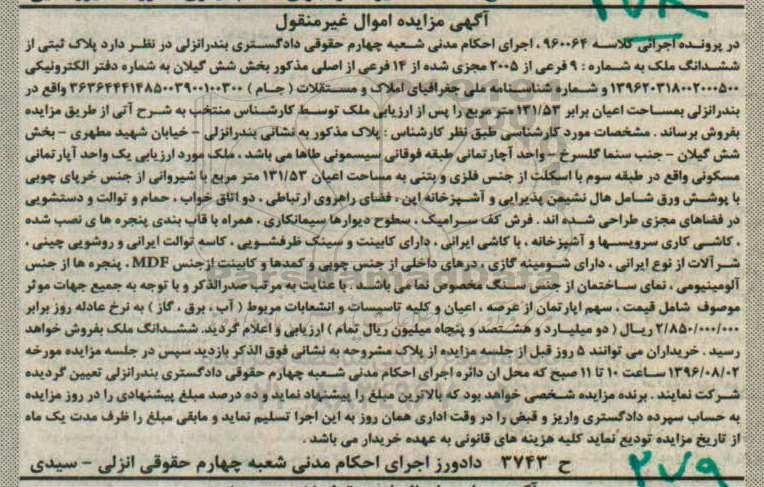 آگهی مزایده اموال غیرمنقول
در پرونده اجرائی کلاسه ۹۶۰۰۶۴ ، اجرای احکام مدنی شعبه چهارم حقوقی دادگستری بندرانزلی در نظر دارد پلاک ثبتی از
ششدانگ ملک به شماره : ۹ فرعی از ۲۰۰۵ مجزی شده از ۱۴ فرعی از اصلی مذکور بخش شش گیلان به شماره دفتر الکترونیکی
۱۳۹۶۲۰۳۱۸۰۰۲۰۰۰۵۰۰ و شماره شناسنامه ملی جغرافیای املاک و مستقلات ( جام ) ۳۶۳۶۴۴۴۱۴۸۵۰۰۳۹۰۰۱۰۰۳۰۰ واقع در
بندرانزلی بمساحت اعیان برابر ۱۳۱/۵۳ متر مربع را پس از ارزیابی ملک توسط کارشناس منتخب به شرح آتی از طریق مزایده
بفروش برساند . مشخصات مورد کارشناسی طبق نظر کارشناس : پلاک مذکور به نشانی بندرانزلی – خیابان شهید مطهری – بخش
شش گیلان – جنب سنما گلسرخ – واحد آچارتمانی طبقه فوقانی سیسمونی طاها می باشد ، ملک مورد ارزیابی یک واحد آپارتمانی
مسکونی واقع در طبقه سوم با اسکلت از جنس فلزی و بتنی به مساحت اعیان ۱۳۱/۵۳ متر مربع با شیروانی از جنس خرپای چوبی
با پوشش ورق شامل هال نشیمن پذیرایی و آشپزخانه اپن ، فضای راهروی ارتباطی ، دو اتاق خواب ، حمام و توالت و دستشویی
در فضاهای مجزی طراحی شده اند . فرش کف سرامیک ، سطوح دیوارها سیمانکاری ، همراه با قاب بندی پنجره ها ی نصب شده
، کاشی کاری سرویسها و آشپزخانه ، با کاشی ایرانی ، دارای کابینت و سینک ظرفشویی ، کاسه توالت ایرانی و روشویی چینی ،
شرآلات از نوع ایرانی ، دارای شومینه گازی ، درهای داخلی از جنس چوبی و کمدها و کابینت ازجنس MDF ، پنجره ها از جنس
آلومینیومی ، نمای ساختمان از جنس سنگ مخصوص نما می باشد . با عنایت به مرقب صدرالذکر و با توجه به جمیع جهات موثر
موصوف شامل قیمت ، سهم اپارتمان از عرصه ، اعیان و کلیه تاسیسات و انشعابات مربوط ( آب ، برق ، گاز ) به نرخ عادله روز برابر
۲/۸۵۰/۰۰۰/۰۰۰ ریال ( دو میلیارد و هشتصد و پنجاه میلیون ریال تمام ) ارزیابی و اعلام گردید. ششدانگ ملک بفروش خواهد
رسید . خریداران می توانند ۵ روز قبل از جلسه مزایده از پلاک مشروحه به نشانی فوق الذکر بازدید سپس در جلسه مزایده مورخه
۱۳۹۶/۰۸/۰۲ ساعت ۱۰ تا ۱۱ صبح که محل ان دائره اجرای احکام مدنی شعبه چهارم حقوقی دادگستری بندرانزلی تعیین گردیده
شرکت نمایند . برنده مزایده شخصی خواهد بود که بالاترین مبلغ را پیشنهاد نماید و ده درصد مبلغ پیشنهادی را در روز مزایده
به حساب سپرده دادگستری واریز و قبض را در وقت اداری همان روز به این اجرا تسلیم نماید و مابقی مبلغ را ظرف مدت یک ماه
از تاریخ مزایده تودیع نماید کلیه هزینه های قانونی به عهده خریدار می باشد .
ح ۳۷۴۳ دادورز اجرای احکام مدنی شعبه چهارم حقوقی انزلی – سیدی
۲۷۹